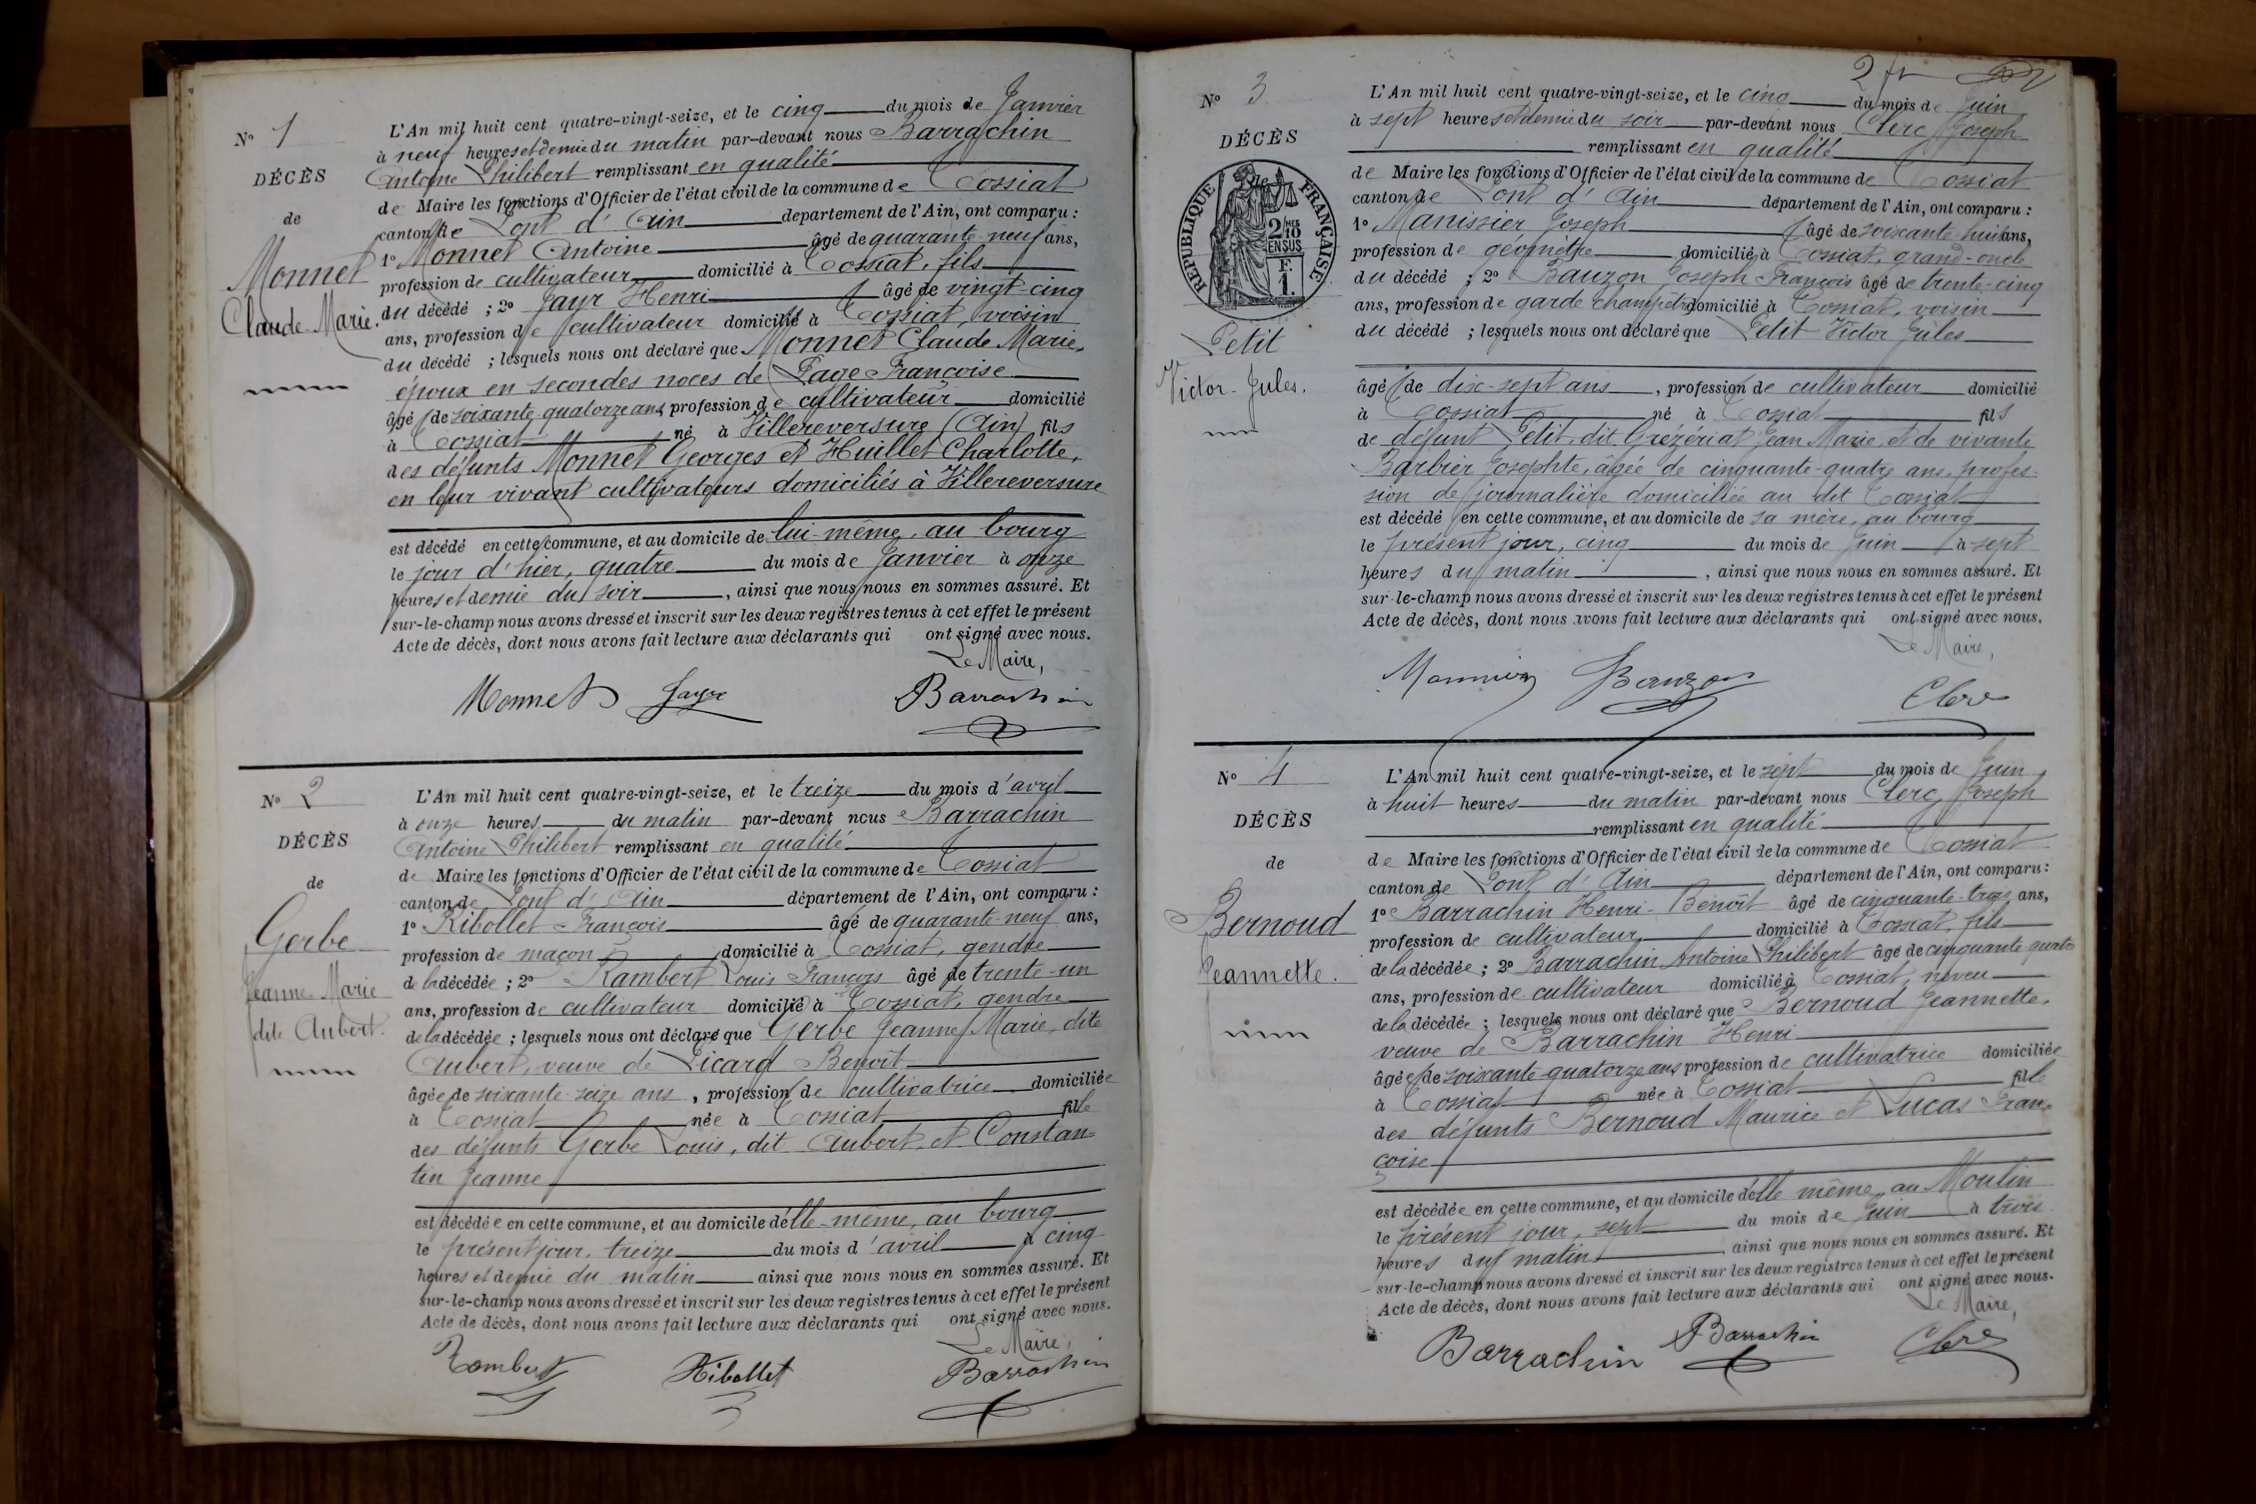 N° 1
DÉCÈS
de
Monnet
Claude Marie.
L'An mil huit cent quatre-vingt-seize, et le cinq du mois de Janvier
à neuf heures et demie du matin par-devant nous Barrachin
Antoine Philibert remplissant en qualité
de Maire les fonctions d'Officier de l'état civil de la commune de Tossiat
canton de Pont d'Ain département de l'Ain, ont comparu :
1° Monnet Antoine âgé de quarante-neuf ans,
profession de cultivateur domicilié à Tossiat, fils
du décédé ; 2° Jayr Henri âgé de vingt-cinq
ans, profession de cultivateur domicilié à Tossiat, voisin
du décédé ; lesquels nous ont déclaré que Monnet Claude Marie,
époux en secondes noces de Page Françoise
âgé de soixante-quatorze ans, profession de cultivateur domicilié
à Tossiat né à Villereversure (Ain) fils
des défunts Monnet Georges et Huillet Charlotte,
en leur vivant cultivateurs domiciliés à Villereversure
est décédé en cette commune, et au domicile de lui-même, au bourg
le jour d'hier, quatre du mois de Janvier à onze
heures et demie du soir, ainsi que nous nous en sommes assuré. Et
sur-le-champ nous avons dressé et inscrit sur les deux registres tenus à cet effet le présent
Acte de décès, dont nous avons fait lecture aux déclarants qui ont signé avec nous.
Le Maire,
Monnet Jayr Barrachin
N° 2
DÉCÈS
de
Gerbe
Jeanne Marie
dite Aubert.
L'An mil huit cent quatre-vingt-seize, et le treize du mois d'avril
à onze heures du matin par-devant nous Barrachin
Antoine Philibert remplissant en qualité
de Maire les fonctions d'Officier de l'état civil de la commune de Tossiat
canton de Pont d'Ain département de l'Ain, ont comparu :
1° Ribollet François âgé de quarante-neuf ans,
profession de maçon domicilié à Tossiat, gendre
de la décédée ; 2° Rambert Louis François âgé de trente-un
ans, profession de cultivateur domicilié à Tossiat, gendre
de la décédée ; lesquels nous ont déclaré que Gerbe Jeanne Marie, dite
Aubert, veuve de Picard Benoît
âgée de soixante-seize ans, profession de cultivatrice domiciliée
à Tossiat née à Tossiat fille
des défunts Gerbe Louis, dit Aubert, et Constan-
tin Jeanne
est décédée en cette commune, et au domicile d'elle-même, au bourg
le présent jour, treize du mois d'avril à cinq
heures et demie du matin ainsi que nous nous en sommes assuré. Et
sur-le-champ nous avons dressé et inscrit sur les deux registres tenus à cet effet le présent
Acte de décès, dont nous avons fait lecture aux déclarants qui ont signé avec nous.
Le Maire,
Rambert Ribollet Barrachin
N° 3
DÉCÈS
RÉPUBLIQUE FRANÇAISE
2/10 EN SUS
F. 1.
Petit
Victor-Jules.
L'An mil huit cent quatre-vingt-seize, et le cinq du mois de Juin
à sept heures et demie du soir par-devant nous Clerc Joseph
remplissant en qualité
de Maire les fonctions d'Officier de l'état civil de la commune de Tossiat
canton de Pont d'Ain département de l'Ain, ont comparu :
1° Manissier Joseph âgé de soixante-huit ans,
profession de géomètre domicilié à Tossiat, grand-oncle
du décédé ; 2° Bauzon Joseph-François âgé de trente-cinq
ans, profession de garde champêtre domicilié à Tossiat, voisin
du décédé ; lesquels nous ont déclaré que Petit Victor Jules
âgé de dix-sept ans, profession de cultivateur domicilié
à Tossiat né à Tossiat fils
de défunt Petit, dit Grézériat Jean Marie, et de vivante
Barbier Josephte, âgée de cinquante-quatre ans, profes-
sion de journalière domiciliée au dit Tossiat
est décédé en cette commune, et au domicile de sa mère, au bourg
le présent jour, cinq du mois de Juin à sept
heures du matin, ainsi que nous nous en sommes assuré. Et
sur-le-champ nous avons dressé et inscrit sur les deux registres tenus à cet effet le présent
Acte de décès, dont nous avons fait lecture aux déclarants qui ont signé avec nous.
Le Maire,
Bauzon Clerc
N° 4
DÉCÈS
de
Bernoud
Jeannette.
L'An mil huit cent quatre-vingt-seize, et le sept du mois de Juin
à huit heures du matin par-devant nous Clerc Joseph
remplissant en qualité
de Maire les fonctions d'Officier de l'état civil de la commune de Tossiat
canton de Pont d'Ain département de l'Ain, ont comparu :
1° Barrachin Henri-Benoît âgé de cinquante-trois ans,
profession de cultivateur, domicilié à Tossiat, fils
de la décédée ; 2° Barrachin Antoine Philibert âgé de cinquante quatre
ans, profession de cultivateur domicilié à Tossiat, neveu
de la décédée ; lesquels nous ont déclaré que Bernoud Jeannette,
veuve de Barrachin Henri
âgée de soixante-quatorze ans profession de cultivatrice domiciliée
à Tossiat née à Tossiat fille
des défunts Bernoud Maurice et Lucas Fran-
çoise
est décédée en cette commune, et au domicile d'elle même, au Moulin
le présent jour, sept du mois de Juin à trois
heures du matin ainsi que nous nous en sommes assuré. Et
sur-le-champ nous avons dressé et inscrit sur les deux registres tenus à cet effet le présent
Acte de décès, dont nous avons fait lecture aux déclarants qui ont signé avec nous.
Le Maire,
Barrachin Barrachin Clerc